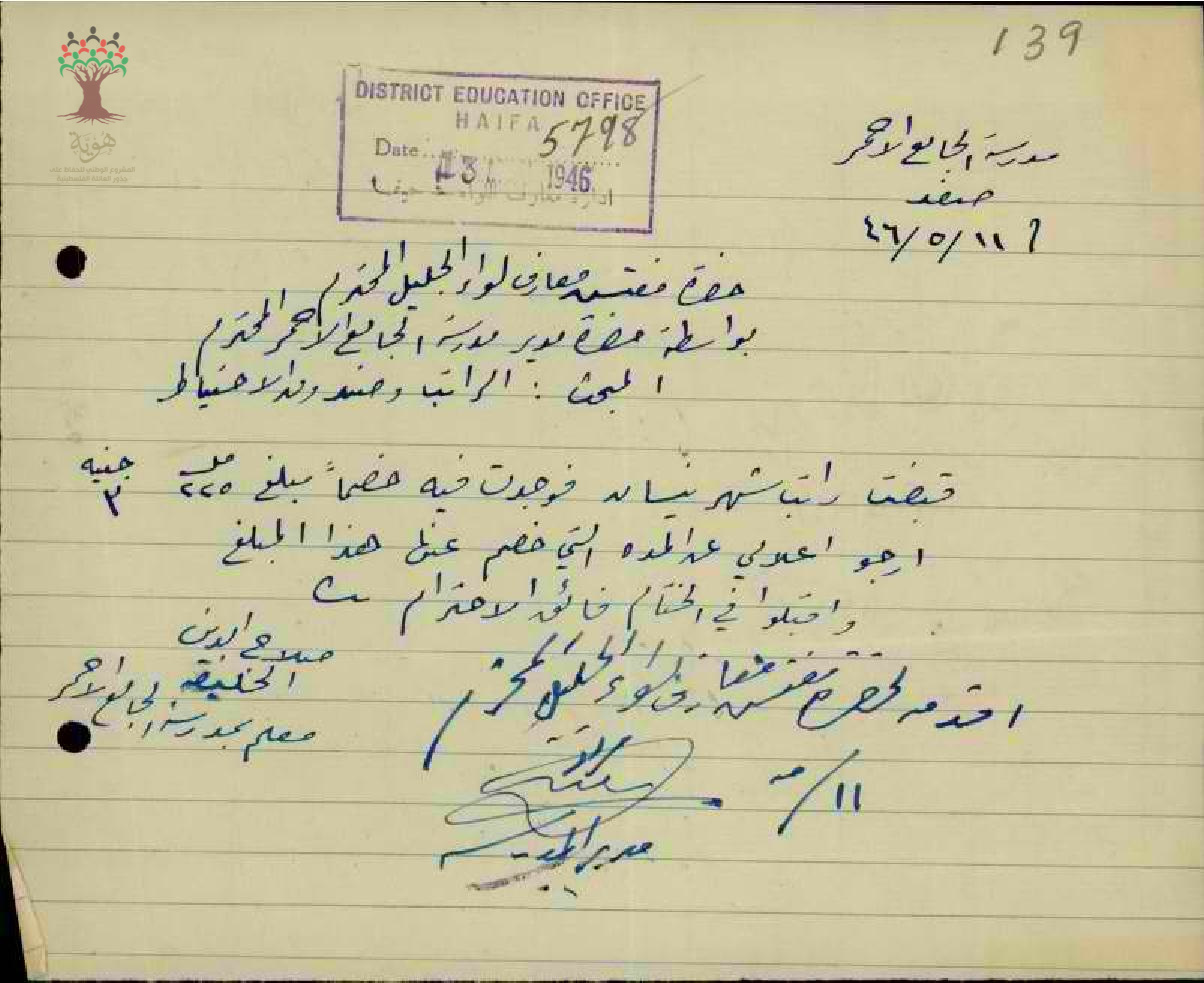 139
هوية
DISTRICT EDUCATION OFFICE
HAIFA
5798
Date
1946
ادارة معارف لواء حيفا
مدرسة الجامع الاحمر
صفد
١١/٥/٤٦
حضرة مفتش معارف لواء الجليل المحترم
بواسطة حضرة مدير مدرسة الجامع الاحمر المحترم
المبحث : الراتب وصندوق الاحتياط
قبضت راتب شهر نيسان فوجدت فيه خصماً مبلغ ٢٢٥ مل ٣ جنيه
ارجو اعلامي عن المده التي خصم عنها هذا المبلغ
واقبلوا في الختام فائق الاحترام
صلاح الدين
الخليفه
معلم بمدرسة الجامع الاحمر
اقدمه لحضرة مفتش معارف لواء الجليل المحترم
١١/٥
مدير المدرسة